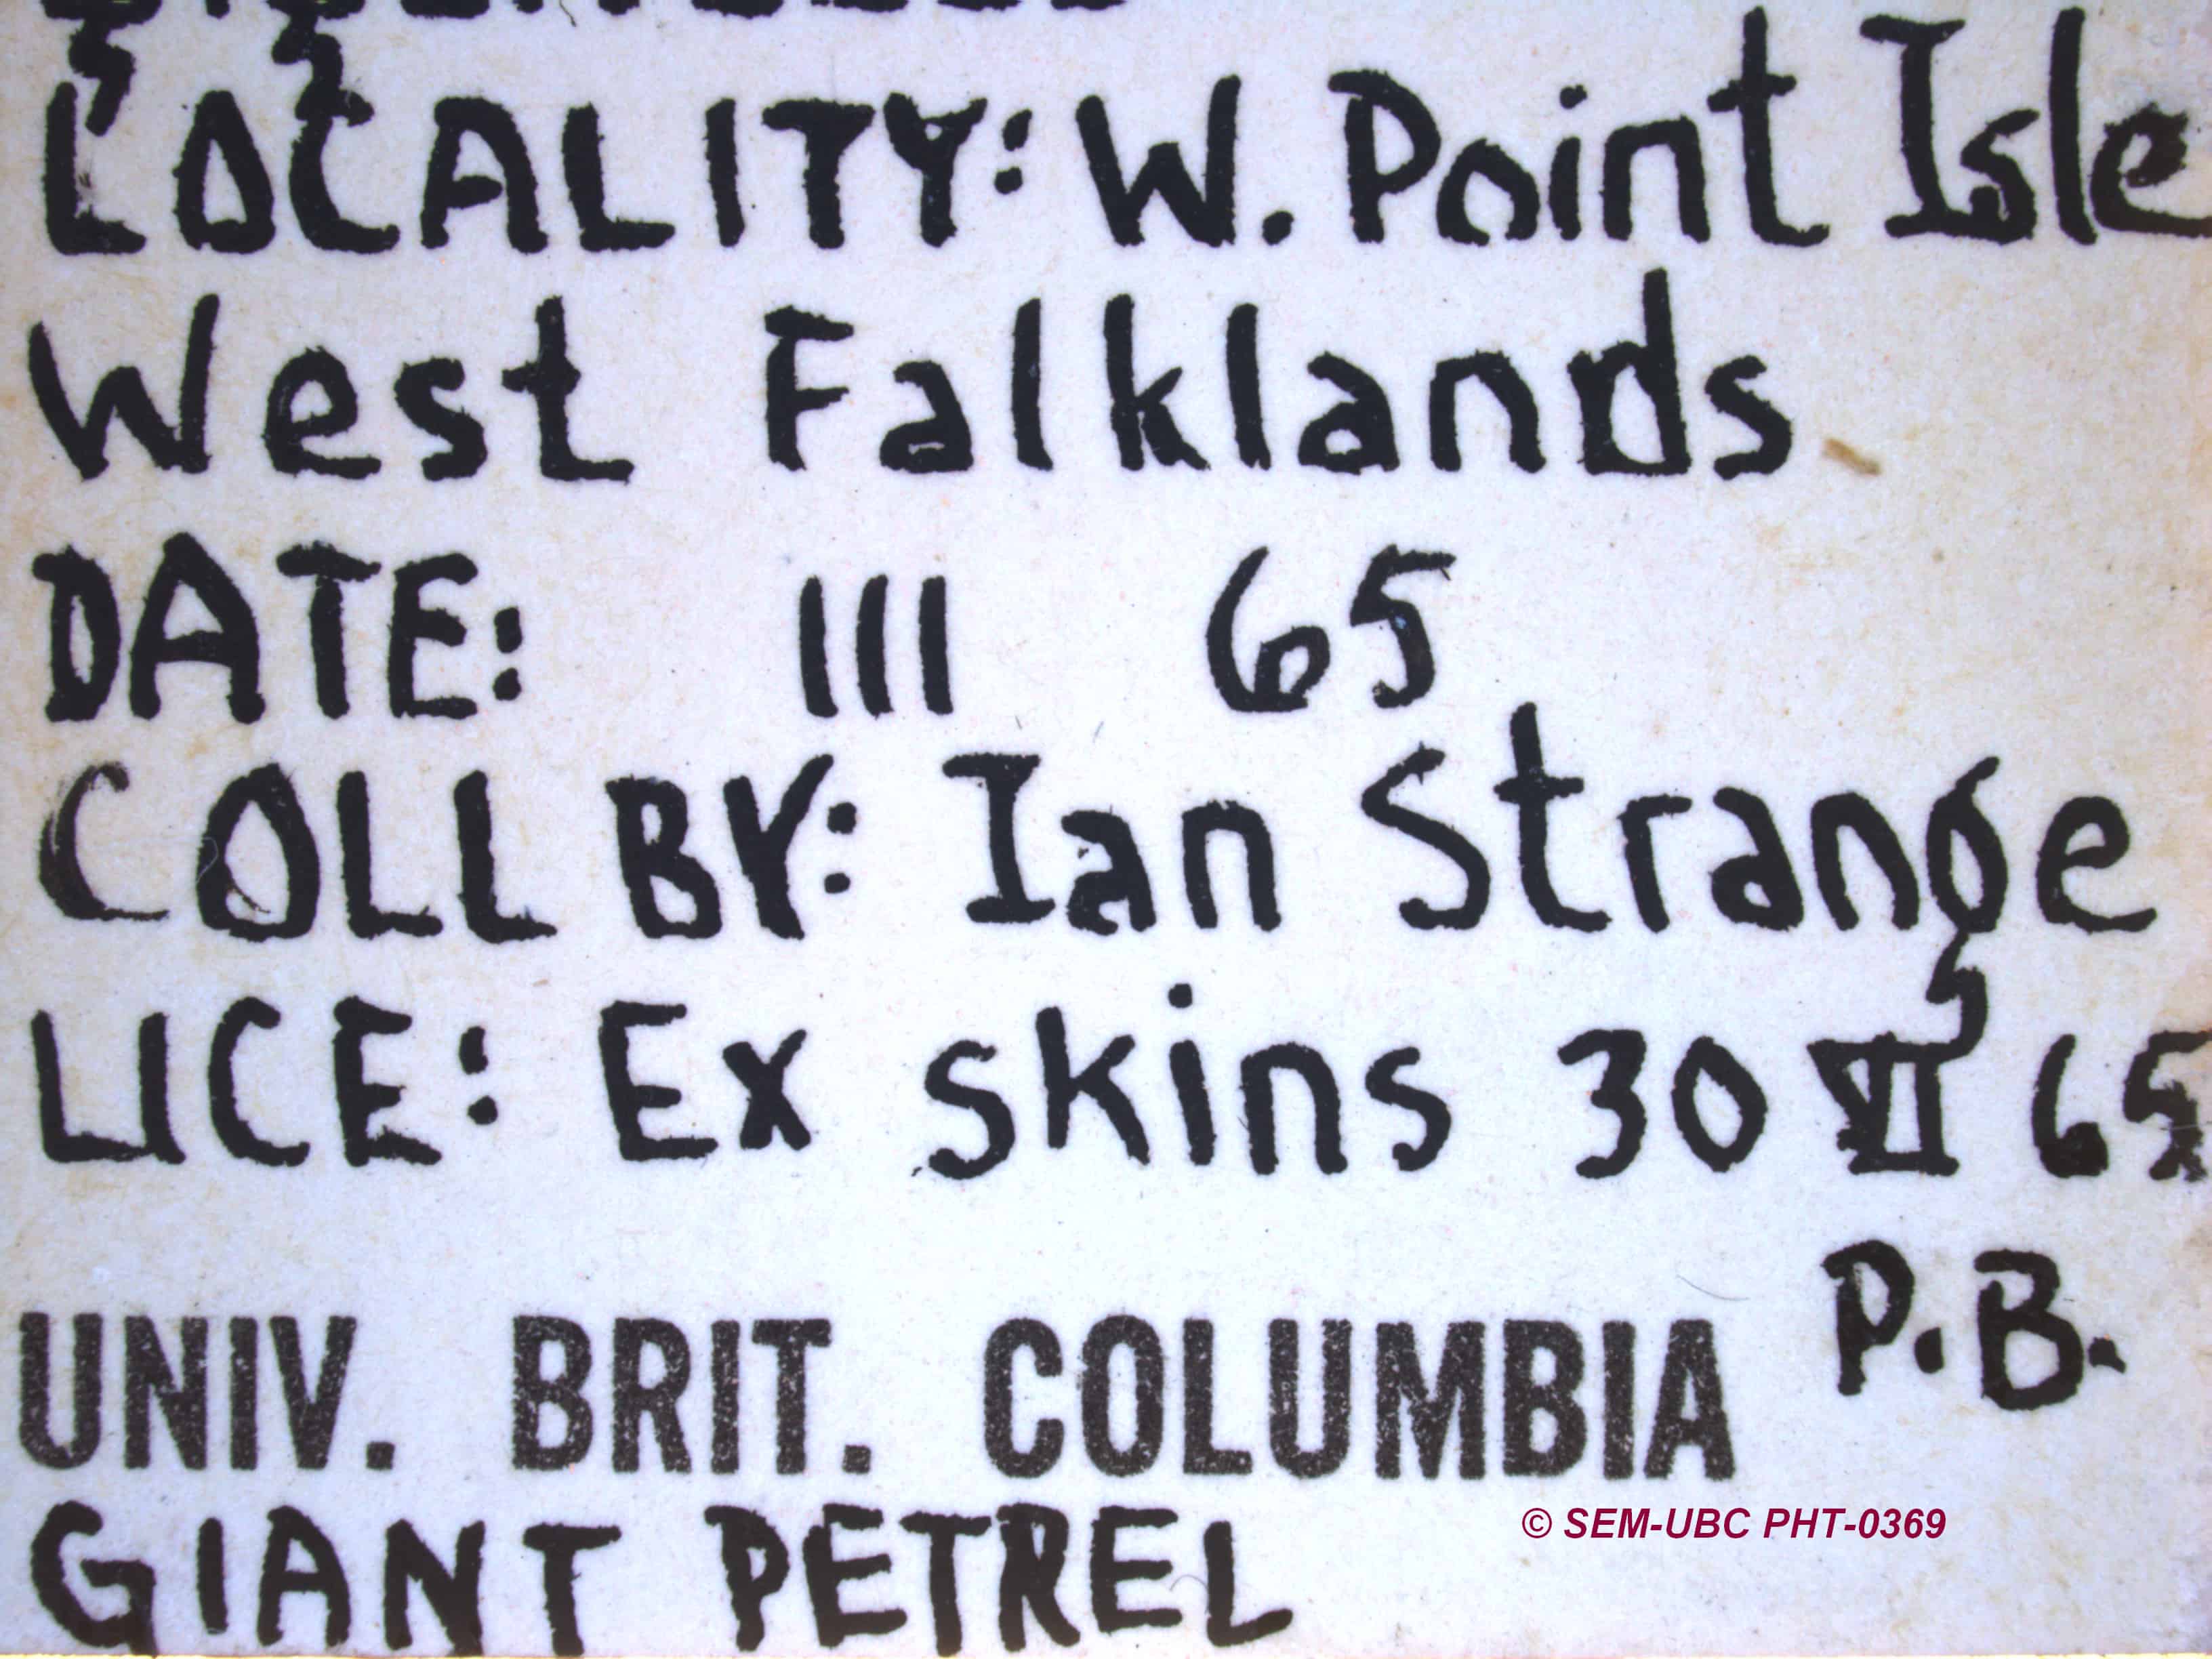 LOCALITY: W. Point Isle
West Falklands
DATE: III 65
COLL BY: Ian Strange
LICE: Ex skins 30 VI 65
P.B.
UNIV. BRIT. COLUMBIA
GIANT PETREL
© SEM-UBC PHT-0369